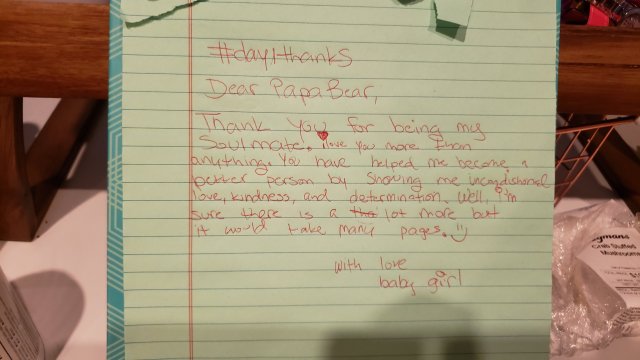 #day1thanks
Dear Papa Bear,
Thank you for being my
Soulmate. I love you more than
anything. You have helped me become a
better person by showing me uncondishonal
love, kindness, and determination. Well, i'm
sure there is a the lot more but
it would take many pages. :)
With love
baby girl
Crab Stuffed
Mushrooms